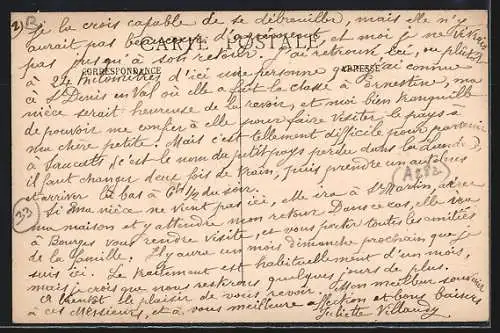 2) B
je la crois capable de se débrouiller, mais elle n'y
aurait pas beaucoup d'agrément, et moi je ne vivrais
CARTE POSTALE
pas jusqu'à son retour. J'ai retrouvé ici, ou plutôt
CORRESPONDANCE
ADRESSE
à 22 kilomètres d'ici une personne que j'ai connue
à St Denis en Val où elle a fait la classe à Ernestine, ma
nièce serait heureuse de la revoir, et moi bien tranquille
de pouvoir me confier à elle pour faire visiter le pays à
ma chère petite. Mais c'est tellement difficile pour parvenir
à c'est le nom du petit pays perdu dans la
il faut changer deux fois de train, puis prendre un autobus
et arriver là bas à 6h 1/2 du soir.
A882
33
Si ma nièce ne vient pas ici, elle ira à St Martin,
ma maison et y attendre mon retour. Dans ce cas, elle ira
à Bourges vous rendre visite, et vous porter toutes les amitiés
de la famille. Il y aura un mois dimanche prochain que je
suis ici. Le traitement est habituellement d'un mois,
mais je crois que nous resterons quelques jours de plus.
A bientôt le plaisir de vous revoir. Mon meilleur souvenir
à ces Messieurs, et à vous meilleure affection et bons baisers
Juliette